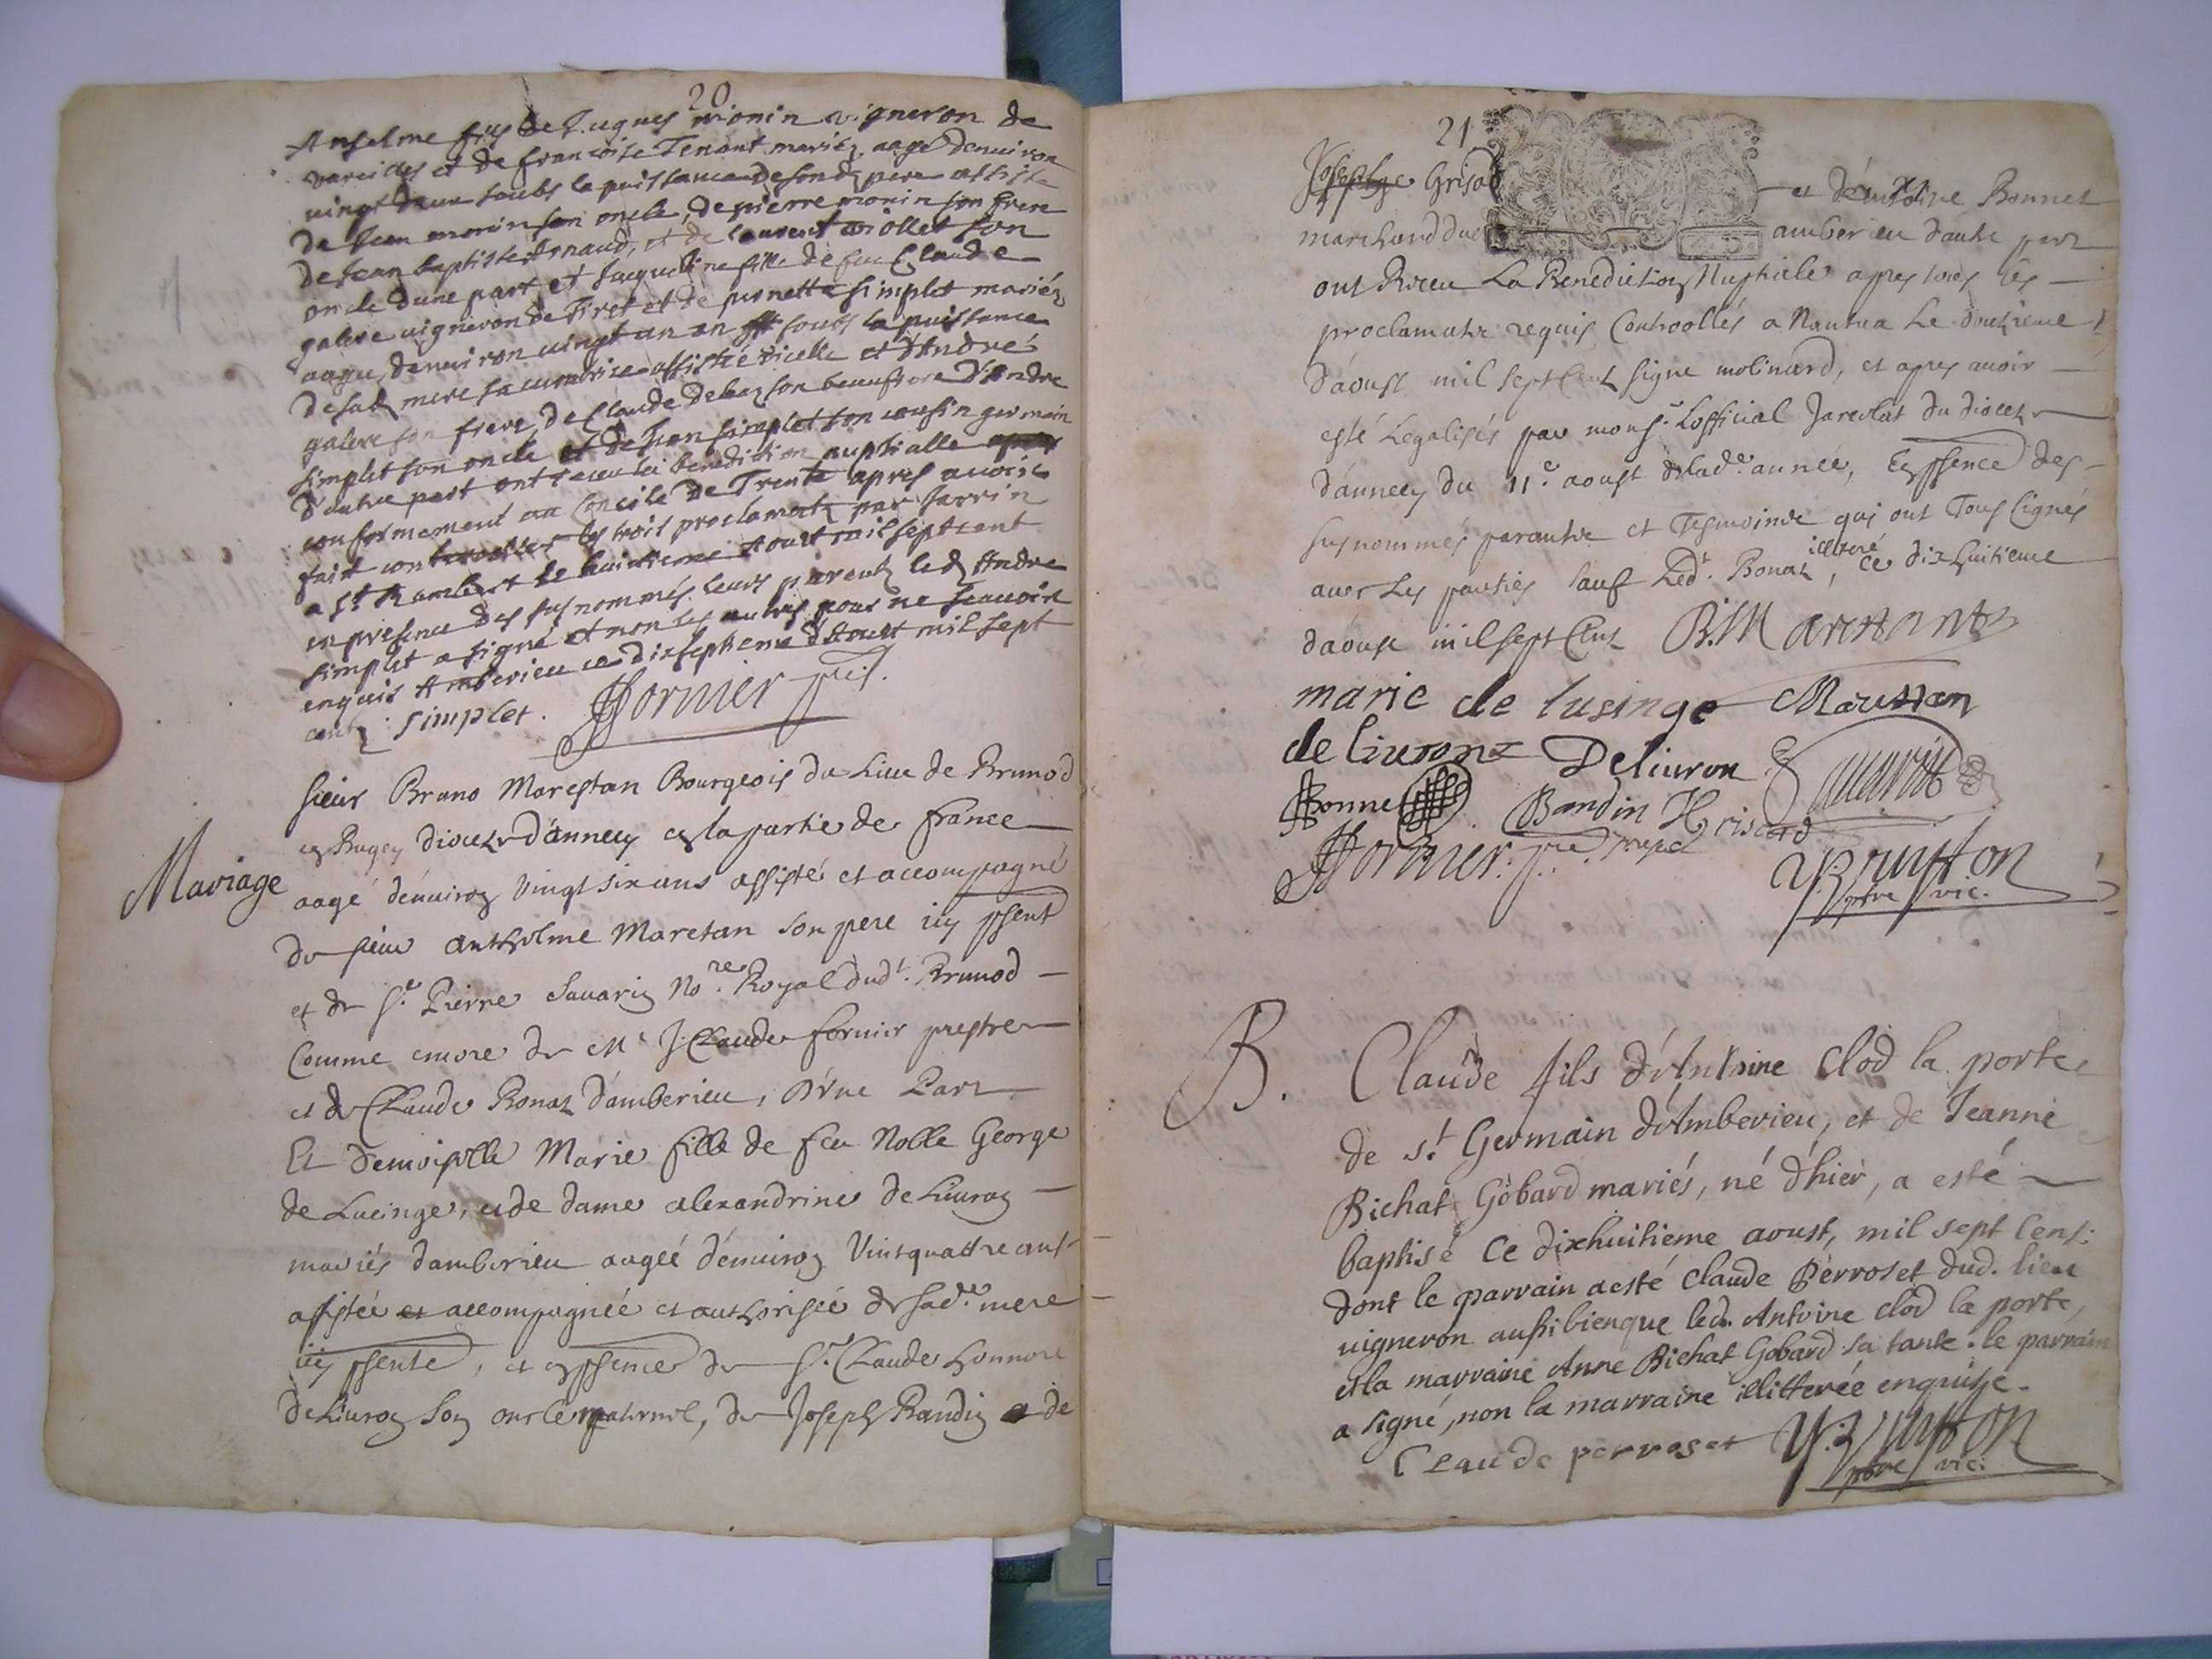 20
Anselme fils de Hugues monin vigneron de
vareilles et de francoise Tenant mariés aagé denviron
vingt deux soubs la puissance de sond pere assisté
de Jean monin son oncle, de pierre monin son frere
de Jean baptiste Arnaud, et de laurent violet son
oncle dune part et Jaqueline fille de feu Claude
galere vigneron de Tiret et de pernette simplet mariés
aagée denviron vingt un an soubs la puissance
de sad mere sa curatrice assistée dicelle et d'André
galere son frere, de Claude debaz son beaufrere d'Andre
simplet son oncle et de Jean simplet son cousin germain
d'autre part ont receu la benediction nuptialle
conformement au Concile de Trente apres avoir
fait controoller les trois proclamats par Sarrin
a St Rambert le huictieme Aoust mil sept cent
en presence des susnommés leurs parents led Andre
simplet a signé et non les autres pour ne scavoir
enquis Amberieu ce dixseptieme d'Aoust mil sept
cent simplet. Fornier pts.
Mariage
sieur Bruno Marestan Bourgeois du Lieu de Brunod
en Bugey diocese d'annecy en la partie de france
aagé d'enuiron vingt six ans assisté et accompagné
du sieur anthelme Maretan son pere icy psent
et de Sr. Pierre Sauarin Nore. Royal dudt. Brunod
Comme encore de Mr J Claude fornier prestre
et de Claude Bonaz d'amberieu, d'vne Part
Et demoiselle Marie fille de feu Noble George
de Lucinge, et de dame alexandrine de Liuron
mariés d'amberieu aagée d'enuiron Vintquattre ans
assistée et accompagnée et authorisée de sade. mere
icy psente, et en psence de Sr. Claude honnoré
de Liuron son oncle maternel, de Joseph Baudin et de
21
Joseph Grisod et d'antoine Bonnet
marchand dud amberieu d'autre part
ont Receu La Benediction Nuptiale apres trois des
proclamats requis Controollés a Nantua Le douzieme
d'aoust mil sept Cent signe molinard, et apres auoir
esté Legalisés par monsr. Lofficial Jareolat du diocese
d'annecy du 11e. aoust de lade. année, En psence des
susnommés parants et Tesmoins qui ont Tous signés
auec Les parties sauf Ledt. Bonaz illiteré, ce dix huitieme
d'aoust mil sept Cent B. Marestant
marie de lusinge Marestan
de liuron Deliuron Sauarin
Bonnet Baudin H Grisard
Fornier. pre. Brunod
Bruisson
ptre vic.
B. Claude fils d'Antoine Clod la porte
de st. Germain d'Amberieu, et de Jeanne
Bichat Gobard mariés, né d'hier, a esté
baptisé ce dixhuitieme aoust, mil sept cent:
dont le parrain a esté claude Perroset dud. lieu
uigneron aussibienque led. Antoine clod la porte,
et la marraine Anne Bichat Gobard sa tante: le parrain
a signé, non la marraine illitterée enquise.
Claude perroset Bruisson
ptre vic: